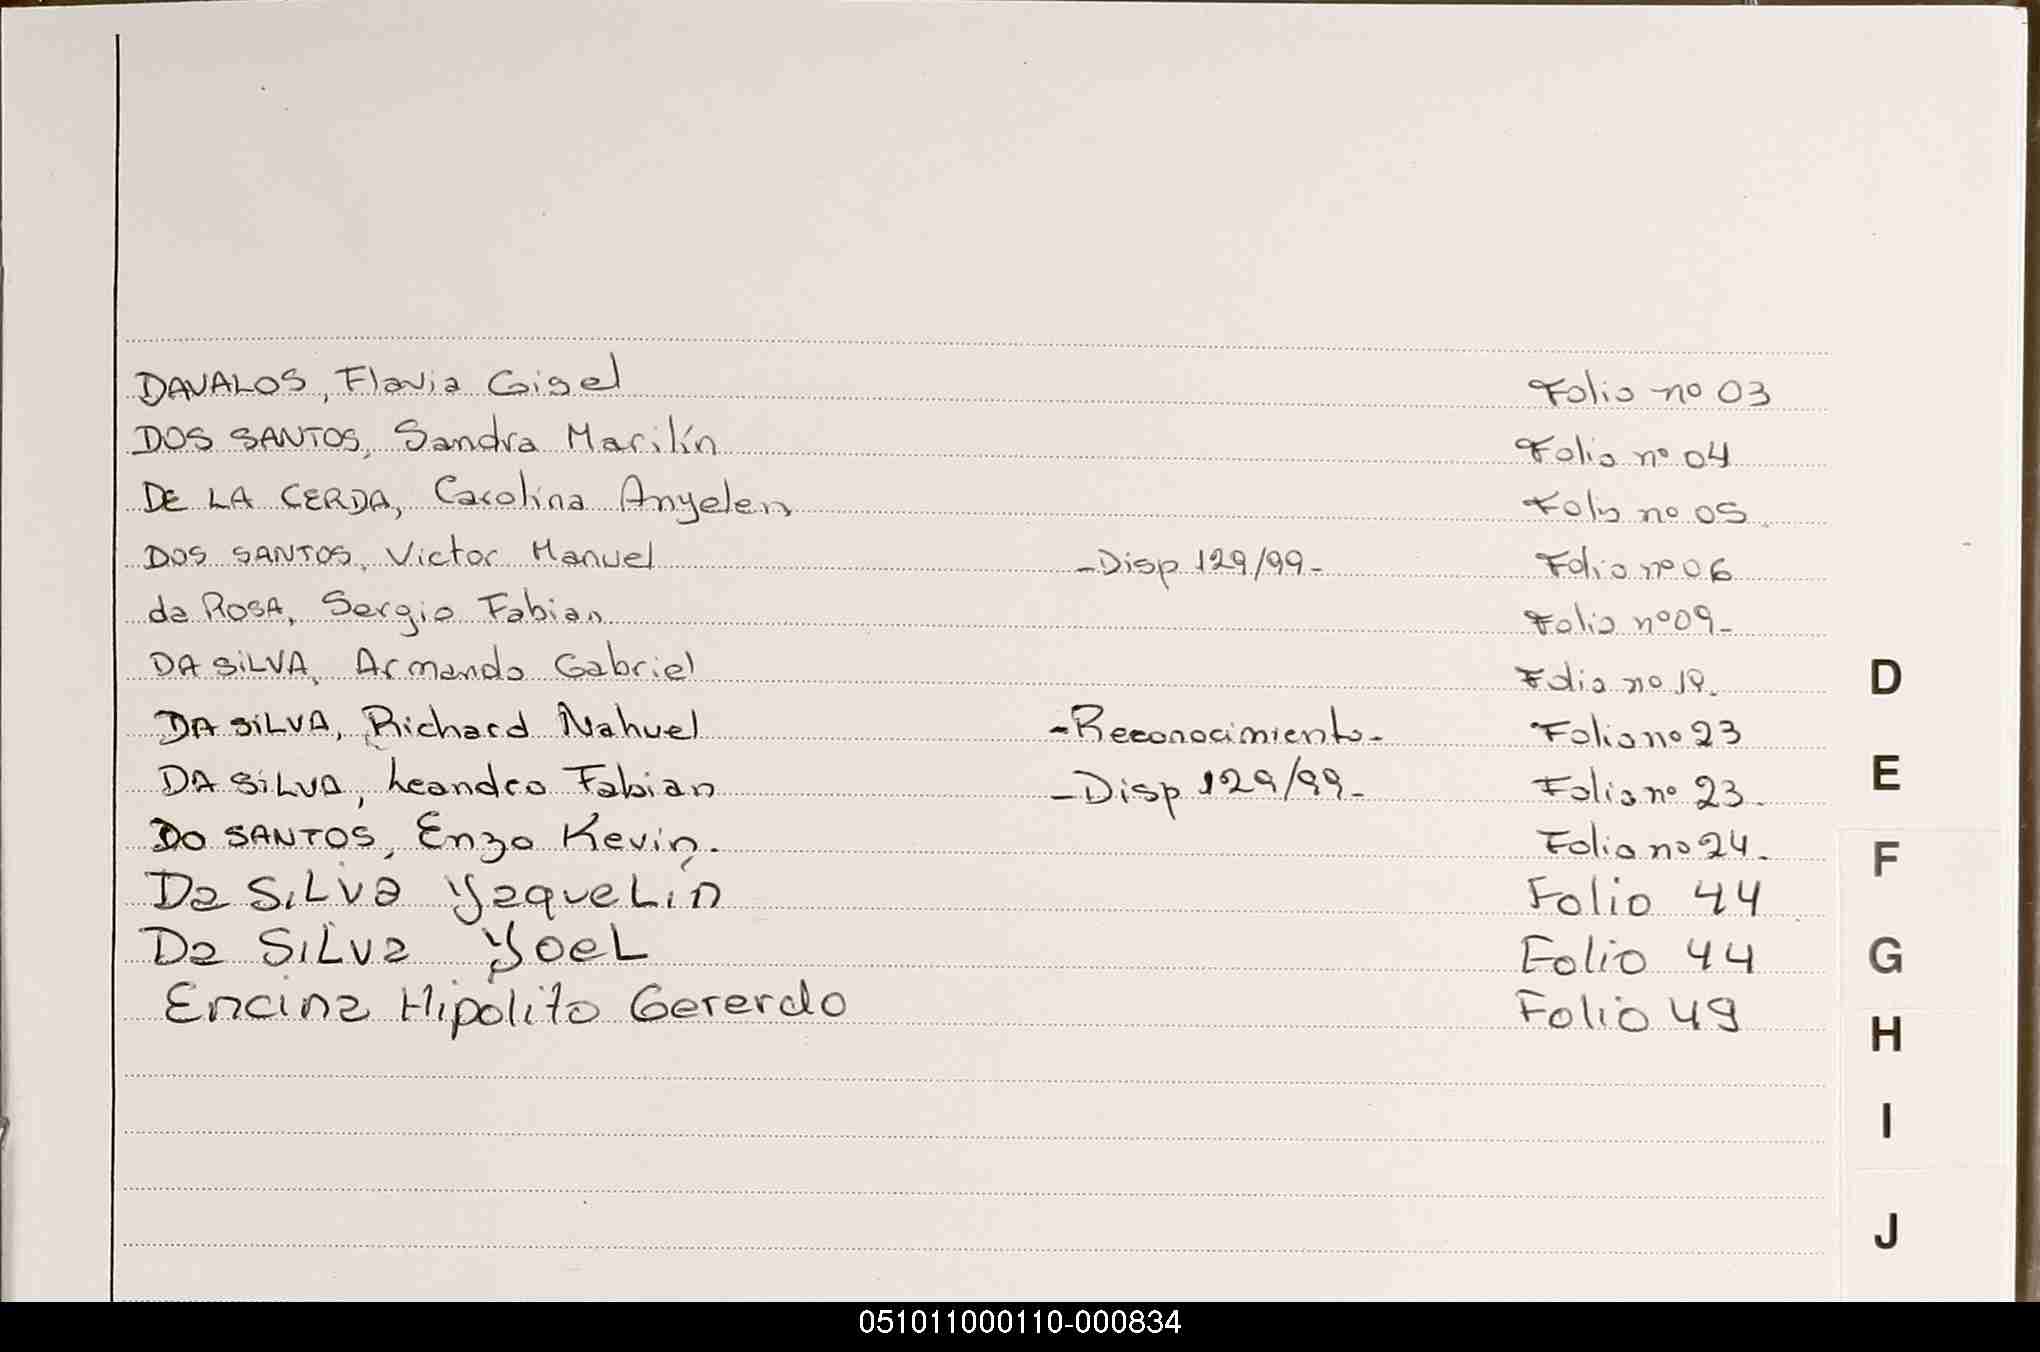 DAVALOS, Flavia Gisel Folio nº 03
DOS SANTOS, Sandra Marilín Folio nº 04
DE LA CERDA, Carolina Anyelen Folio nº 05
DOS SANTOS, Victor Manuel -Disp 129/99- Folio nº 06
da ROSA, Sergio Fabian Folio nº 09-
DA SILVA, Armando Gabriel Folio nº 19.
D
DA SILVA, Richard Nahuel -Reconocimiento- Folio nº 23
DA SILVA, Leandro Fabian -Disp 129/99- Folio nº 23-
E
DO SANTOS, Enzo Kevin. Folio nº 24.
F
Da SiLVa YaqueLin Folio 44
Da SiLVa YoeL Folio 44
G
Encina Hipolito Gererdo Folio 49
H
I
J
051011000110-000834